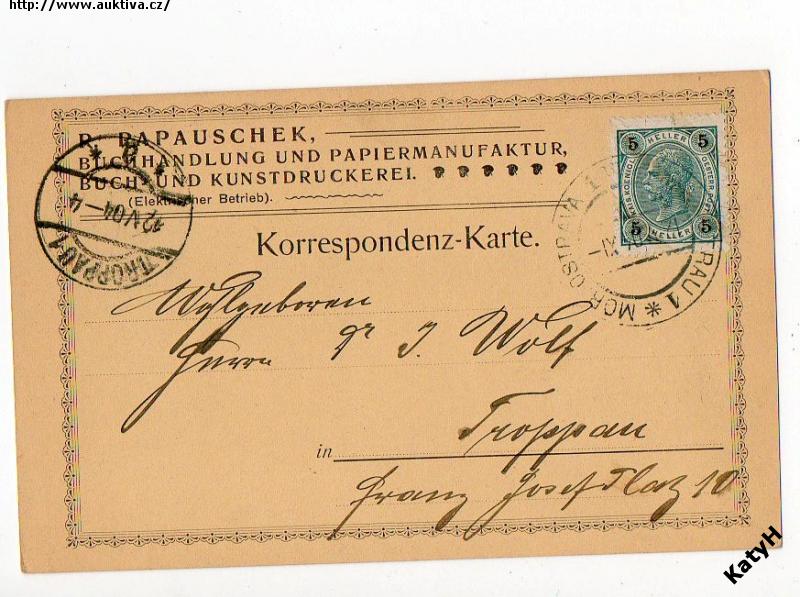 http://www.auktiva.cz/
R. PAPAUSCHEK,
BUCHHANDLUNG UND PAPIERMANUFAKTUR,
BUCH- UND KUNSTDRUCKEREI.
(Elektrischer Betrieb).
TROPPAU 1
12 V 04-4
5 HELLER 5
5 HELLER 5
MOR. OSTRAVA
RAU 1
Korrespondenz-Karte.
Wohlgeboren
Herrn Dr J. Wolf
Troppau
in
Franz Josef Platz 10
KatyH